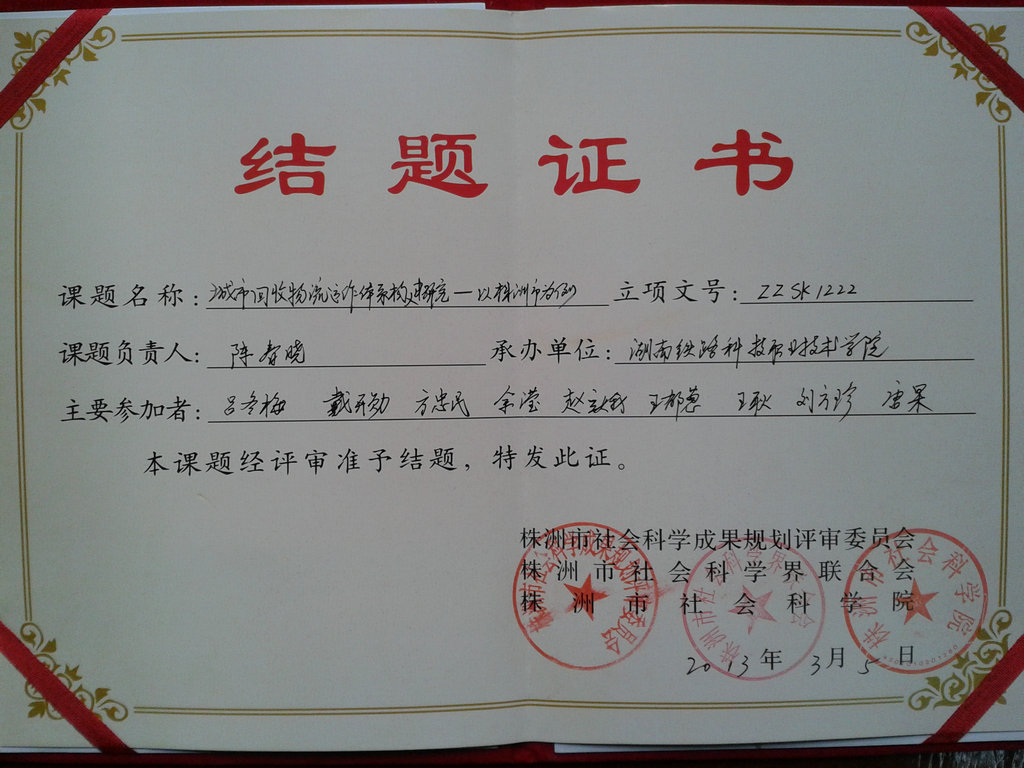 结题证书
课题名称：城市回收物流运作体系构建研究—以株洲市为例 立项文号：ZZSK1222
课题负责人：陈春晓 承办单位：湖南铁路科技职业技术学院
主要参加者：吕冬梅 戴开勋 方忠民 余滢 王郁葱 王耿 刘方珍 唐果
本课题经评审准予结题，特发此证。
株洲市社会科学成果规划评审委员会
株洲市社会科学界联合会
株洲市社会科学院
2013年3月5日